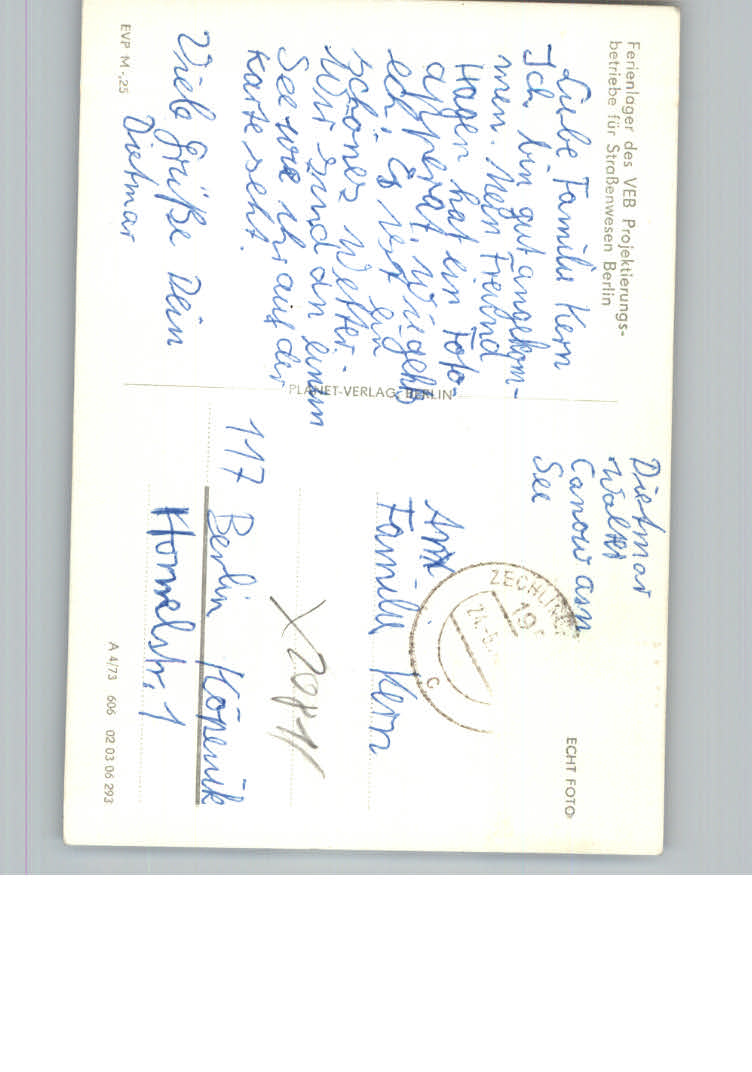 Ferienlager des VEB Projektierungs-
betriebe für Straßenwesen Berlin
Liebe Familie Kern
Ich bin gut angekom-
men. Mein Freund
Hagen hat ein Foto-
apperat. Wie gehts
ech? Es ist ein
schönes Wetter.
Wir sind an einem
See wie ihr auf der
Karte seht.
Viele Grüße Dein
Dietmar
EVP M -,25
PLANET-VERLAG BERLIN
Dietmar
Walter
Canow am
See
ECHT FOTO
ZECHLINER
19
24.-6.
c
An
Familie Kern
X 20811
117 Berlin Köpenik
Hommelstr. 1
A 4/73 606 02 03 06 293